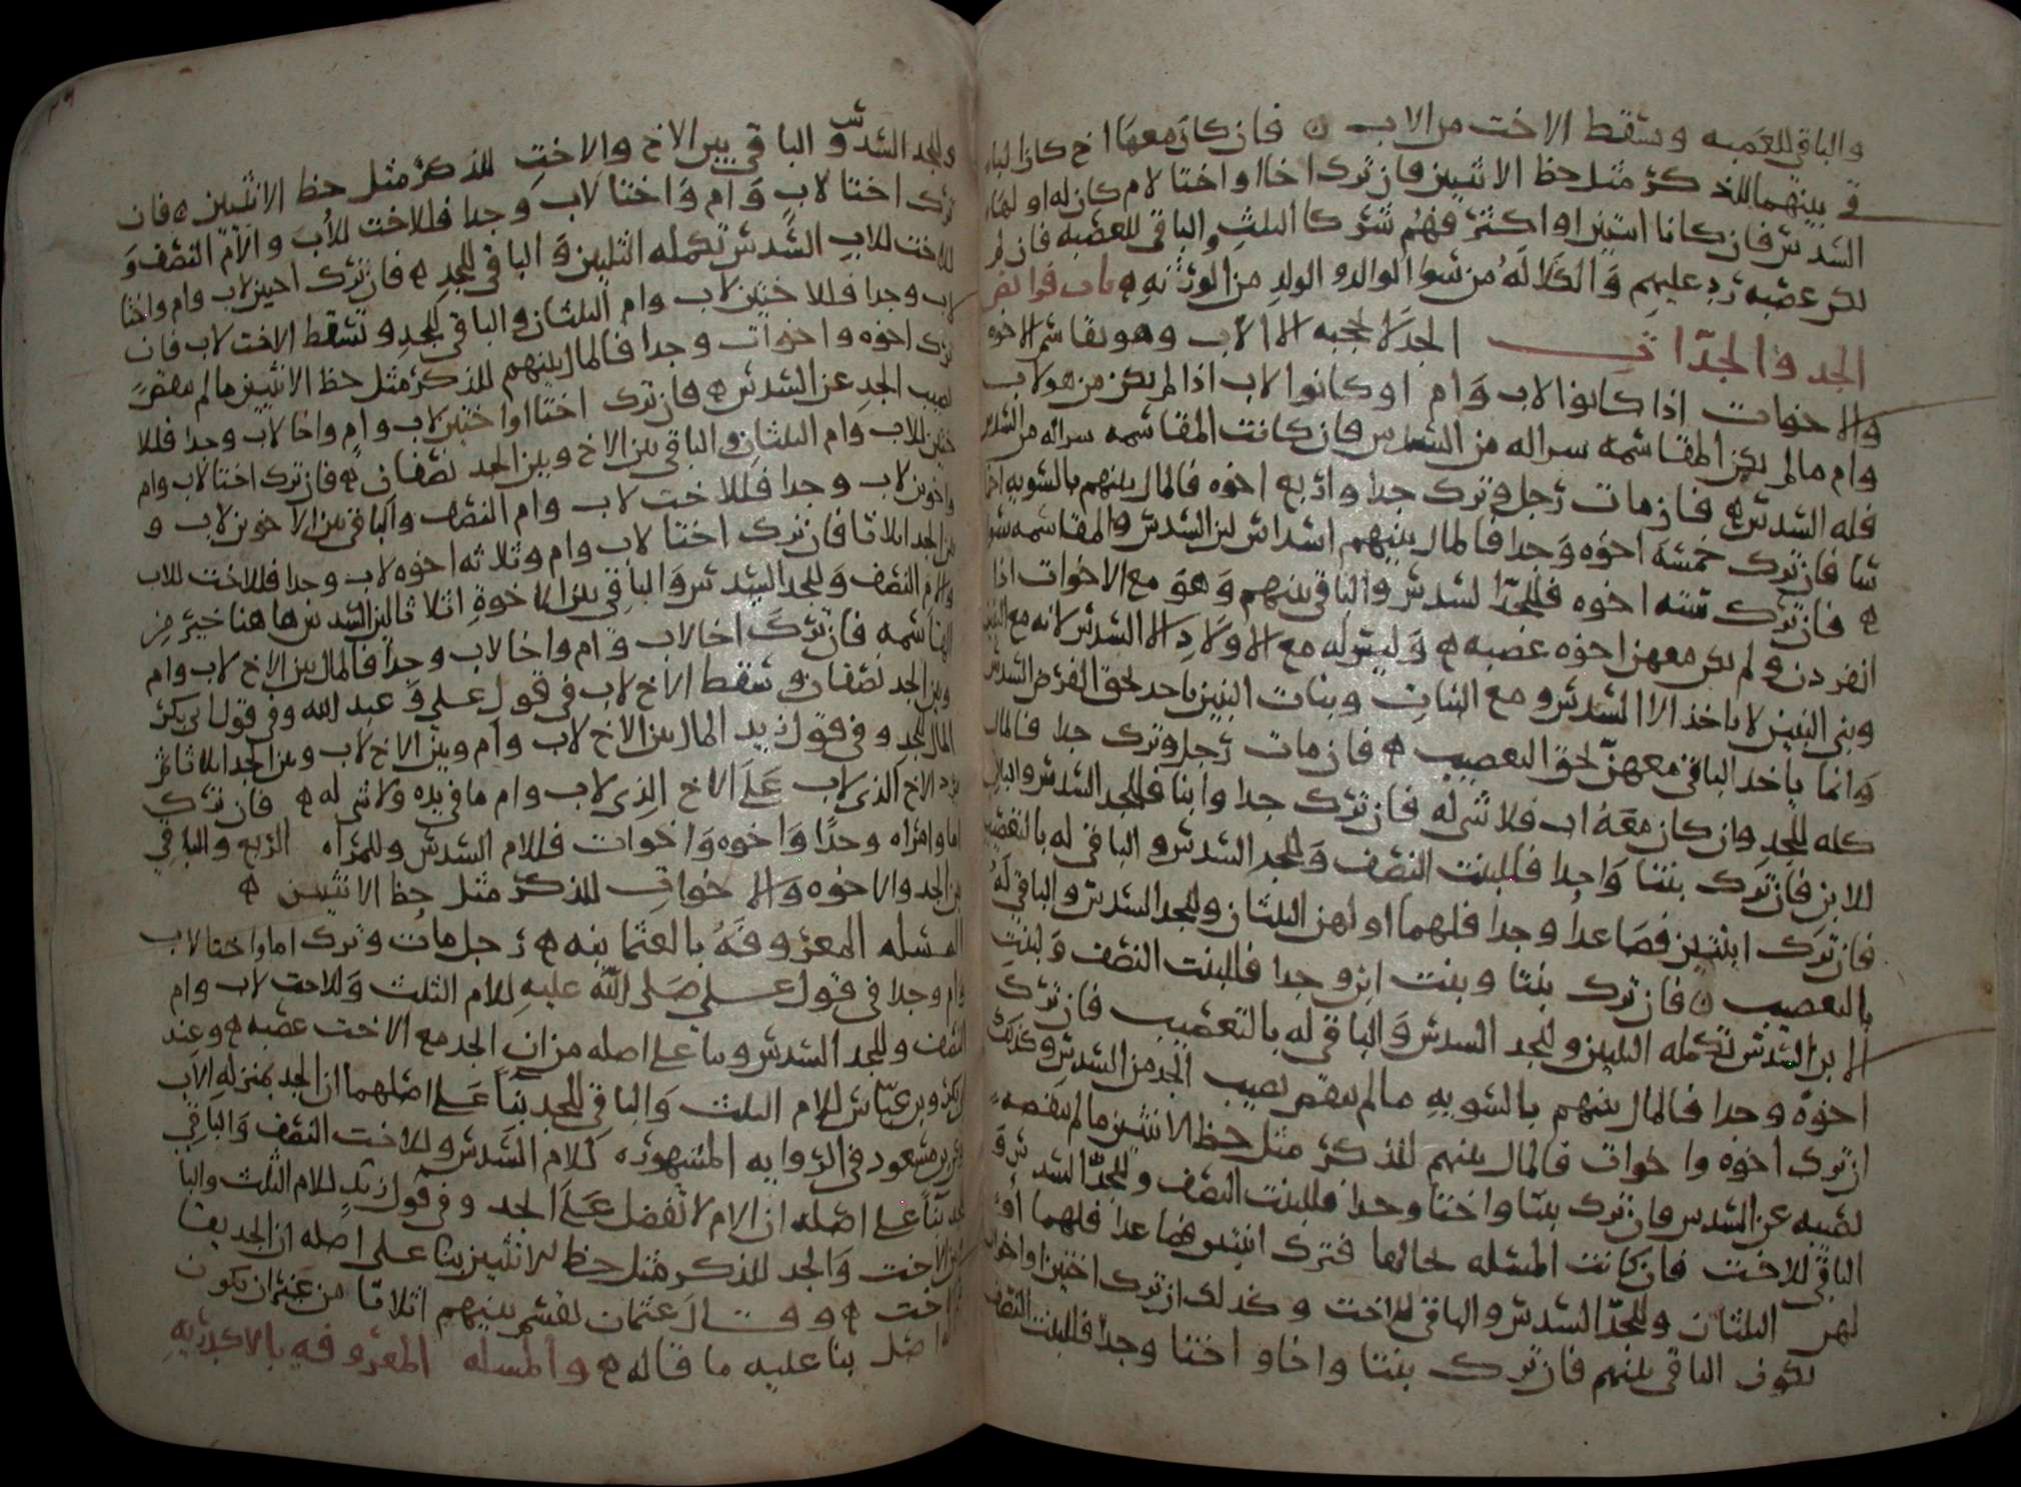 والباقي للعصبه ويسقط الاخت من الاب ه فان كان معها اخ كان الباـ
في بينهما للذكر مثل حظ الانثيين فان ترك اخا او اختا لام كان له او لها
السدس فان كانا اثنين او اكثر فهم شركا الثلث والباقي للعصبه فان لم
يكن عصبه رد عليهم والكلاله من سوا الوالد والولد من الورثه ه باب فرائض
الجد والجدات الجد لا يحجبه الا الاب وهو يقاسم الاخوه
والاخوات اذا كانوا لاب وام او كانوا لاب اذا لم يكن من هو لاب
وام ما لم يكن المقاسمه شرا له من السدس فان كانت المقاسمه شرا له من السدس
فله السدس ه فان مات رجل وترك جدا واربع اخوه فالمال بينهم بالسويه اخما
سا فان ترك خمسه اخوه وجدا فالمال بينهم اسداس لان السدس والمقاسمه سوا
ه فان ترك سته اخوه فللجد السدس والباقي بينهم وهو مع الاخوات اذا
انفردن ولم يكن معهن اخوه عصبه ه وليس له مع الاولاد الا السدس لانه مع البنين
وبني البنين لا ياخذ الا السدس ومع البنات وبنات البنين ياخذ بحق الفرض السدس
وانما ياخذ الباقي معهن بحق التعصيب ه فان مات رجل وترك جدا فالمال
كله للجد وان كان معه اب فلا شي له فان ترك جدا وابنا فللجد السدس والباقي
للابن فان ترك بنتا واحدا فللبنت النصف وللجد السدس والباقي له بالتعصيب
فان ترك ابنتين فصاعدا وجدا فلهما او لهن الثلثان وللجد السدس والباقي له
بالتعصيب ه فان ترك بنتا وبنت ابن وجدا فللبنت النصف ولبنت
الابن السدس تكمله الثلثين وللجد السدس والباقي له بالتعصيب فان ترك
اخوه وجدا فالمال بينهم بالسويه ما لم ينقص نصيب الجد من السدس وكذلك
ان ترك اخوه واخوات فالمال بينهم للذكر مثل حظ الانثيين ما لم ينقصه
نصيبه عن السدس فان ترك بنتا واختا وجدا فللبنت النصف وللجد السدس و
الباقي للاخت فان كانت المسله بحالها فترك ابنتين فصاعدا فلهما او
لهن الثلثان وللجد السدس والباقي للاخت وكذلك ان ترك اختين او اخوات
يكون الباقي بينهم فان ترك بنتا واخا واختا وجدا فللبنت النصف
وللجد السدس والباقي بين الاخ والاخت للذكر مثل حظ الانثيين ه فان
ترك اختا لاب وام واختا لاب وجدا فللاخت للاب والام النصف و
للاخت للاب السدس تكمله الثلثين والباقي للجد ه فان ترك اختين لاب وام واختا
لاب وجدا فللاختين لاب وام الثلثان والباقي للجد وتسقط الاخت لاب فان
ترك اخوه واخوات وجدا فالمال بينهم للذكر مثل حظ الانثيين ما لم ينقص
نصيب الجد عن السدس ه فان ترك اختا او اختين لاب وام واخا لاب وجدا فللا
ختين للاب وام الثلثان والباقي بين الاخ وبين الجد نصفان ه فان ترك اختا لاب وام
واخوين لاب وجدا فللاخت لاب وام النصف والباقي بين الاخوين لاب و
بين الجد اثلاثا فان ترك اختا لاب وام وثلاثه اخوه لاب وجدا فللاخت للاب
والام النصف وللجد السدس والباقي بين الاخوة اثلاثا لان السدس ها هنا خير من
المقاسمه فان ترك اخا لاب وام واخا لاب وجدا فالمال بين الاخ لاب وام
وبين الجد نصفان وتسقط الاخ لاب في قول علي وعبد الله وفي قول ابي بكر
المال للجد وفي قول زيد المال بين الاخ لاب وام وبين الاخ لاب وبين الجد اثلاثا ثم
يرد الاخ الذي لاب على الاخ الذي لاب وام ما في يده ولا شي له ه فان ترك
اما وامراه وجدا واخوه واخوات فللام السدس وللمراه الربع والباقي
بين الجد والاخوه والاخوات للذكر مثل حظ الانثيين ه
المسله المعروفه بالعثمانيه ه رجل مات وترك اما واختا لاب
وام وجدا في قول علي صلى الله عليه للام الثلث وللاخت لاب وام
النصف وللجد السدس وبنا على اصله من ان الجد مع الاخت عصبه ه وعند
ابي بكر وبن عباس للام الثلث والباقي للجد بنا على اصلهما ان الجد بمنزله الاب
وعن بن مسعود في الروايه المشهوره للام السدس وللاخت النصف والباقي
للجد بنا على اصله ان الام لا تفضل على الجد وفي قول زيد للام الثلث والبا
بين الاخت والجد للذكر مثل حظ الانثيين بنا على اصله ان الجد يقا
الاخت ه وقال عثمان يقسم بينهم اثلاثا من غير ان يكون
اصل بنا عليه ما قاله ه والمسله المعروفه بالاكدريه